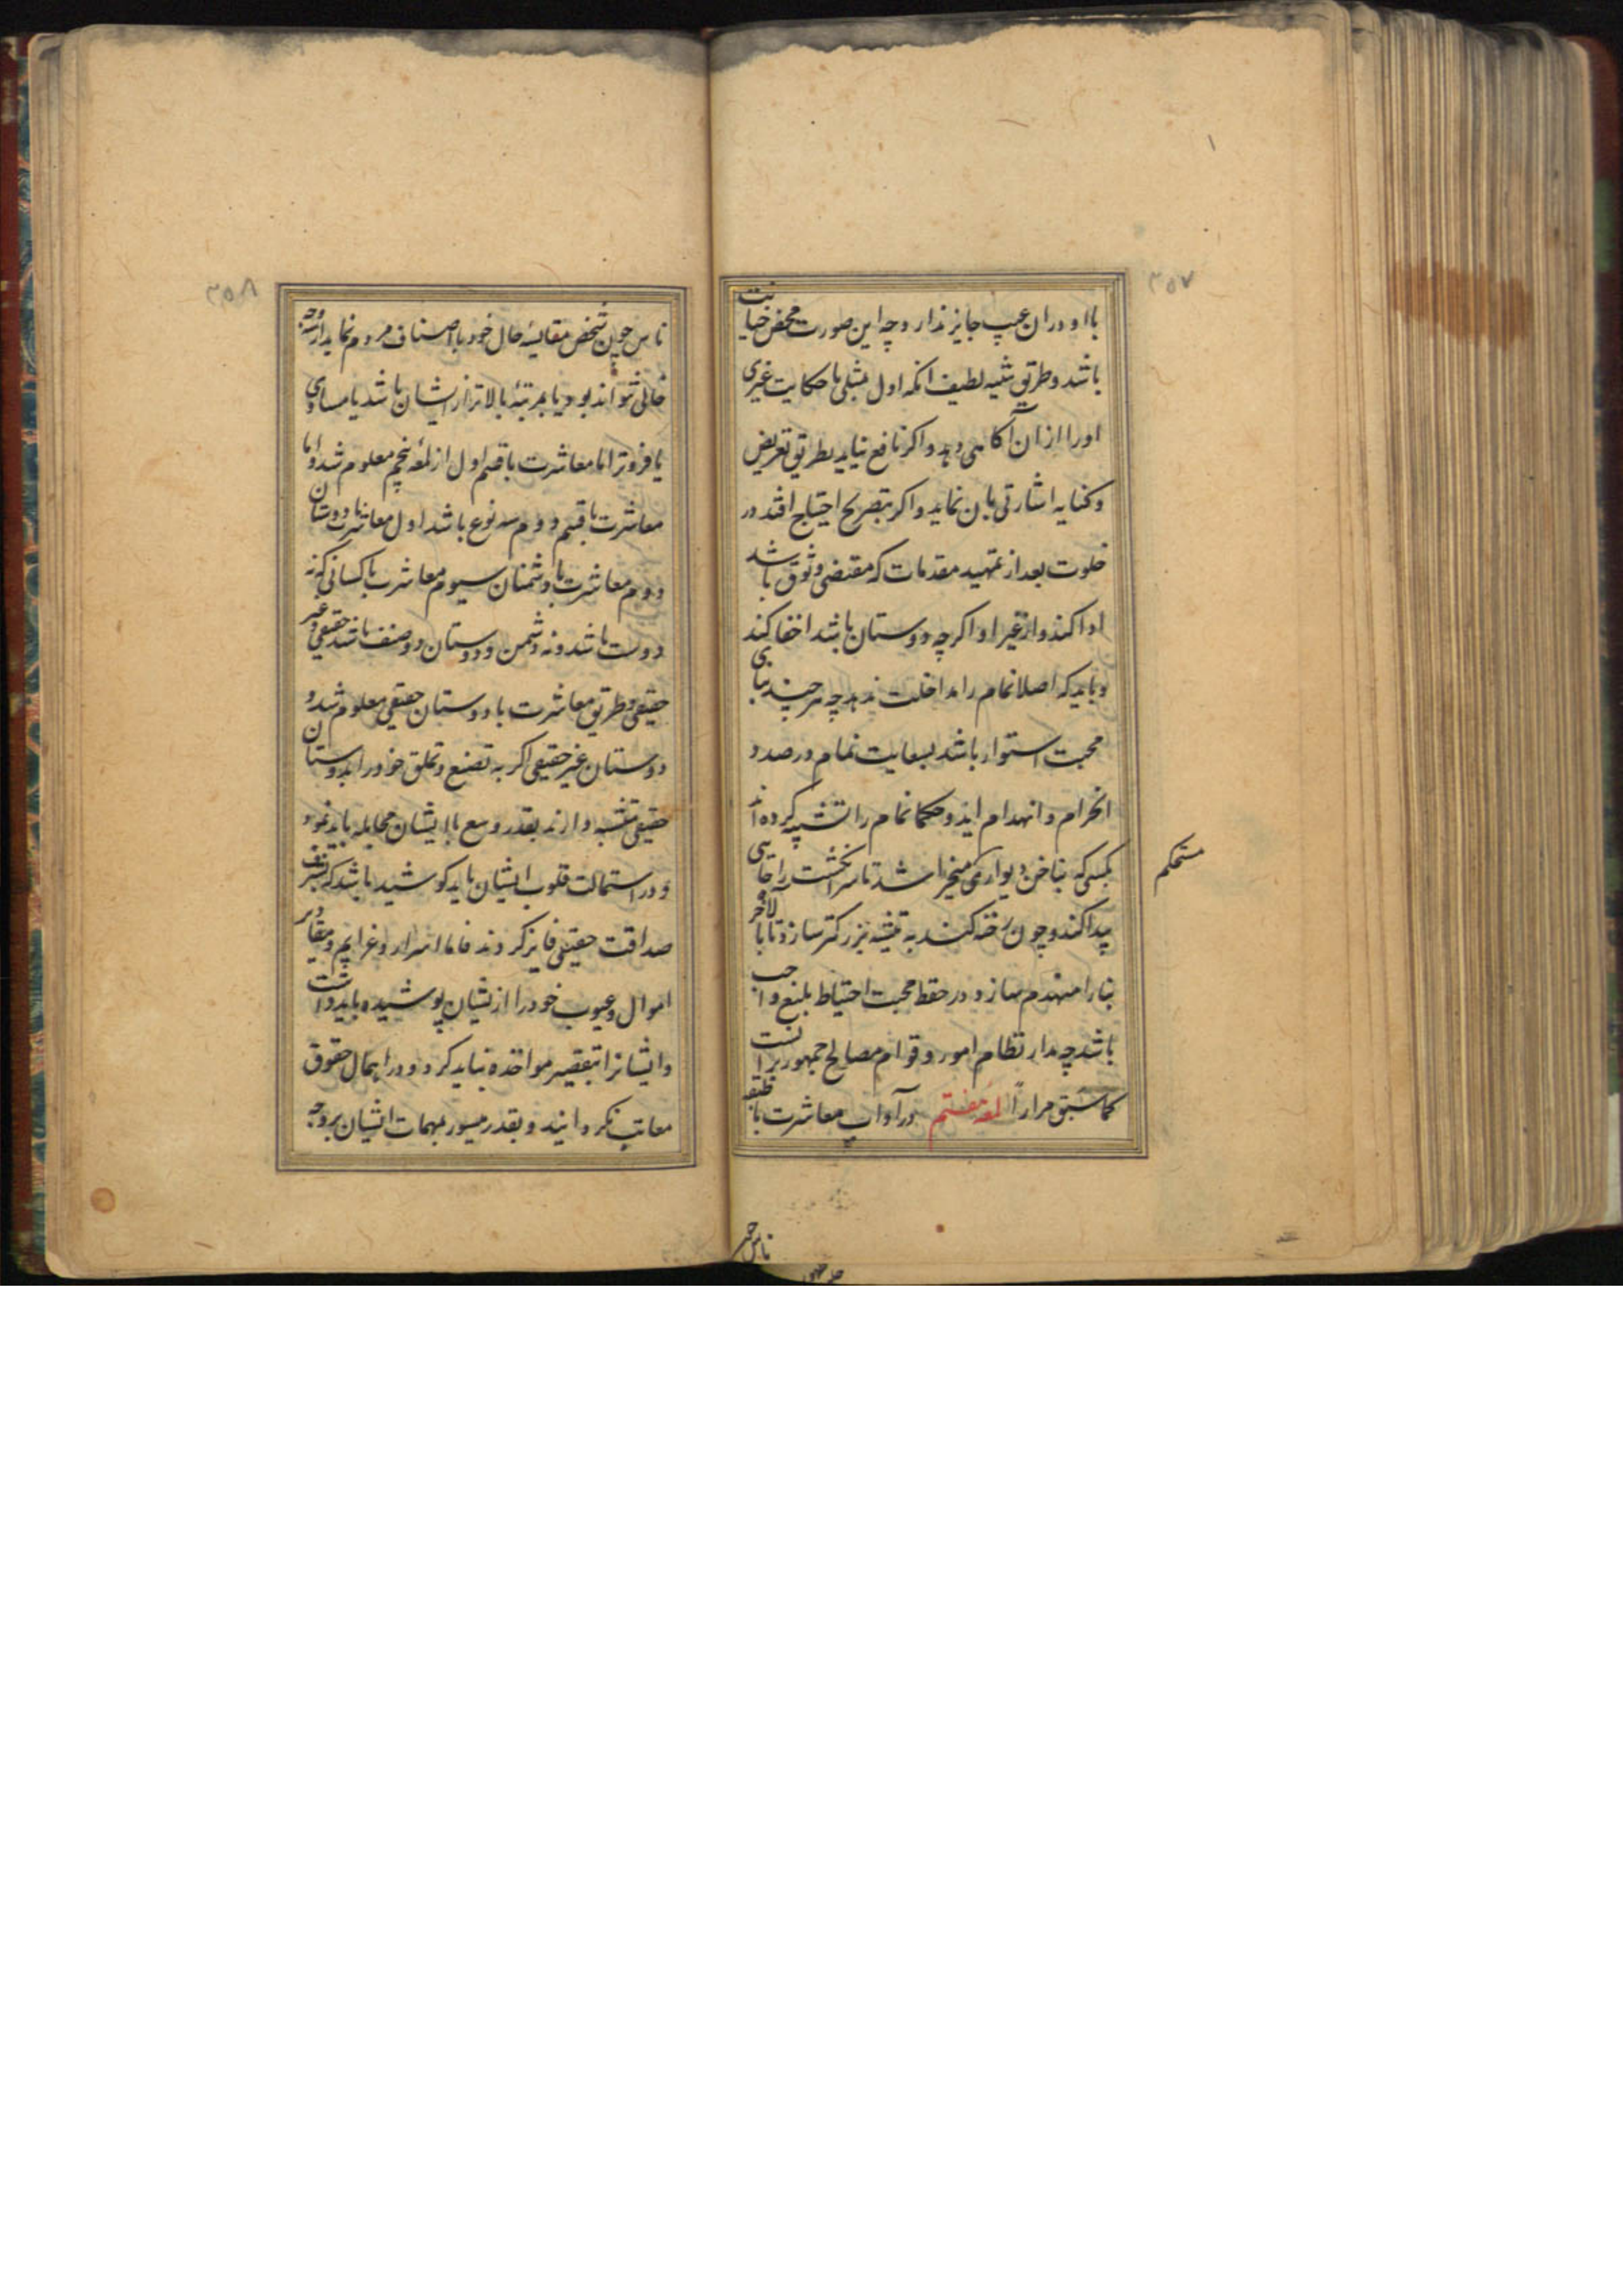 ۳۵۷
با او در ان عیب جایز ندارد و چه این صورت محض خیانت
باشد و طریق تنبیه لطیف انکه اول بمثلی یا حکایت غیری
او را از ان آکاهی دهد و اکر نافع نیاید بطریق تعریض
و کنایه اشارتی بان نماید و اکر بتصریح احتیاج افتد در
خلوت بعد از تمهید مقدمات که مقتضی وثوق باشد
ادا کند و از غیر او اکرچه دوستان باشد اخفا کند
و باید که اصلا نمام را مداخلت ندهد چه هر چند بنای
محبت استوار باشد بسعایت نمام در صدد
انخرام و انهدام اید و حکما نمام را تشبیه کرده اند
بکسی که بناخن دیواری میخراشد تا سر انکشت را جای
پیدا کند و چون رخنه کند به تیشه بزرکتر سازد تا بالاخره
بنا را منهدم سازد و در حفظ محبت احتیاط بلیغ واجب
باشد چه مدار نظام امور و قوام مصالح جمهور بر انست
کما سبق مراراً لمعهٔ هفتم در آداب معاشرت با طبقه
مستحکم
ناس چو
۳۵۸
ناس چون شخص مقایسهٔ حال خود با اصناف مردم نماید از سه وجه
خالی نتواند بود یا بمرتبهٔ بالاتر از ایشان باشد یا مساوی
یا فروتر اما معاشرت با قسم اول از لمعهٔ پنجم معلوم شد و اما
معاشرت با قسم دوم سه نوع باشد اول معاشرت با دوستان
دوم معاشرت با دشمنان سیوم معاشرت با کسانی که نه
دوست باشد و نه دشمن و دوستان دو صنف باشند حقیقی و غیر
حقیقی و طریق معاشرت با دوستان حقیقی معلوم شد و
دوستان غیر حقیقی اکر به تصنع و تملق خود را بدوستان
حقیقی تشبیه دارند بقدر وسع با ایشان مجامله باید نمود
و در استمالت قلوب ایشان باید کوشید باشد که بشرف
صداقت حقیقی فایز کردند فاما اسرار و غرایم و مقادیر
اموال و عیوب خود را از یشان پوشیده باید داشت
و ایشانرا بتقصیر مواخذه نباید کرد و در اهمال حقوق
معاتب نکردانید و بقدر میسور بمهمات ایشان بر وجه